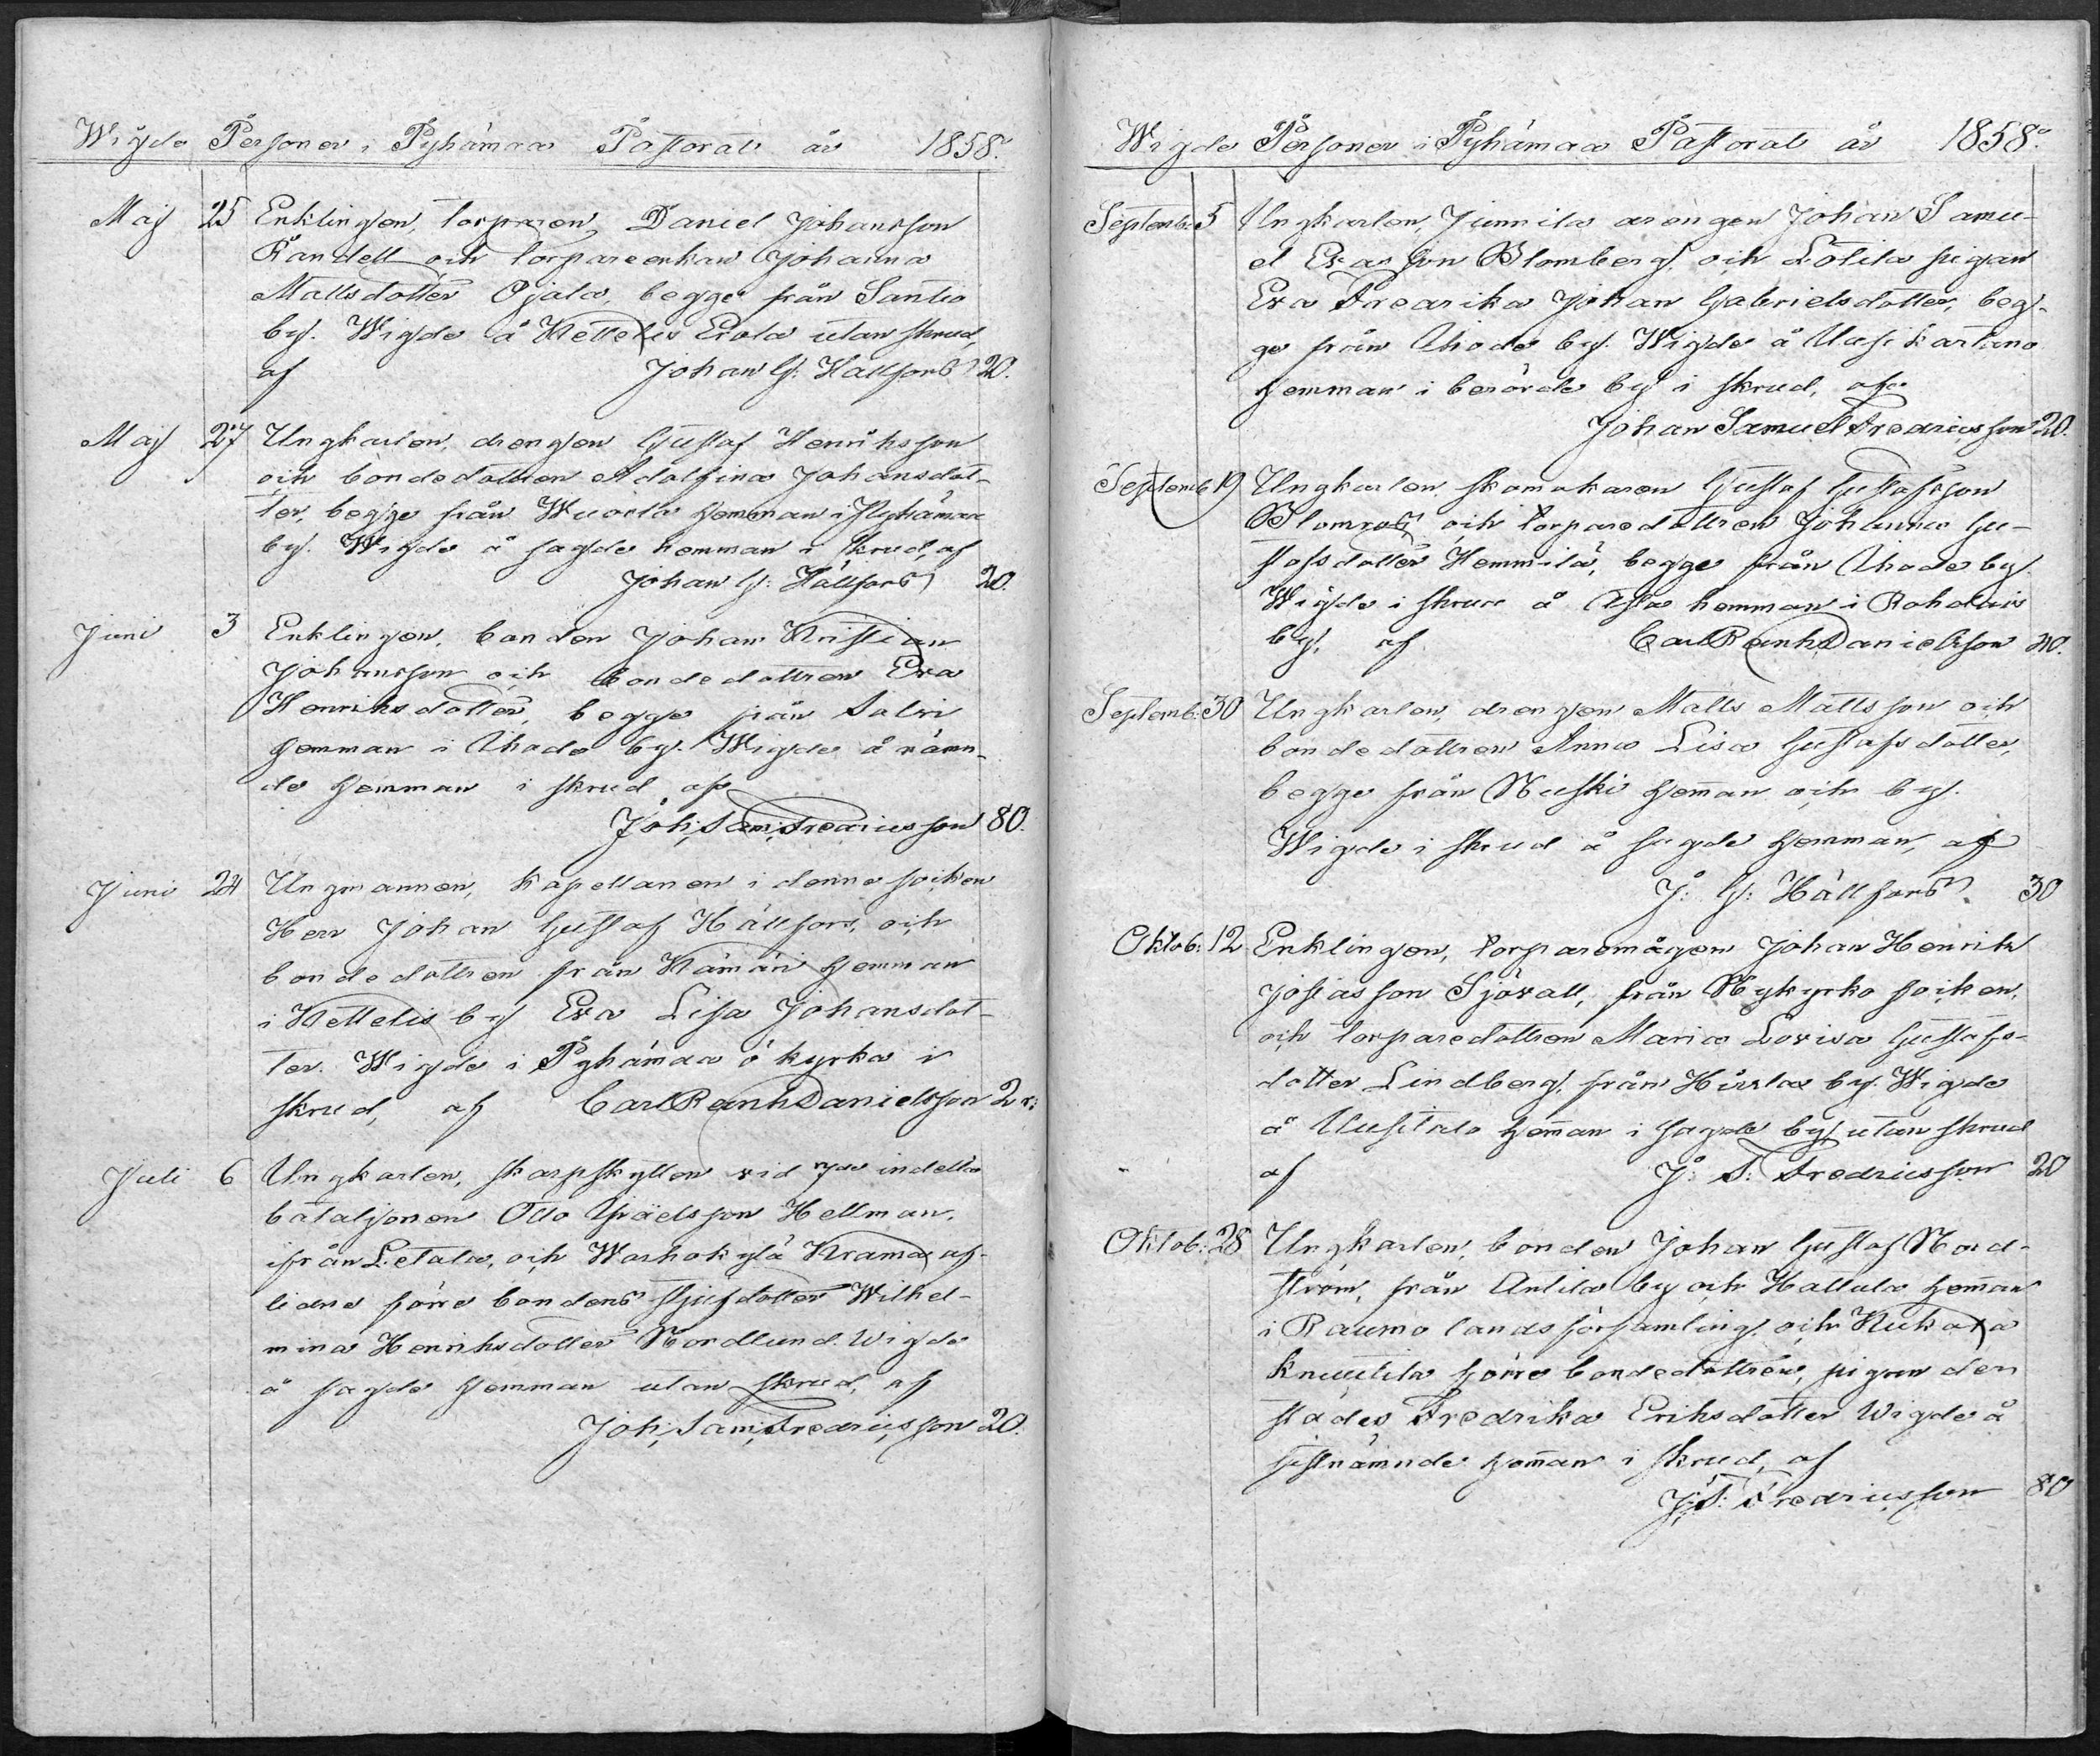 Wigde Personer i Pyhämaa Pastorat år 1858.
Maj 25 Enklingen, torparen, Daniel Johansson
Randell och torpareenkan Johanna
Mattsdotter Ojala, begge från Santio
by. Wigde å Kettelis Erola utan skrud,
af Johan G: Hällfors 20.
Maj 27 Ungkarlen, drengen Gustaf Henriksson
och bondedottren Adolfina Johansdot-
ter, begge från Wuorla hemman i Pyhämaa
by. Wigde å sagde hemman i skrud, af
Johan G: Hällfors 20.
Juni 3 Enklingen, bonden Johan Kristian
Johansson och bondedottren Eva
Henriksdotter, begge från Salvi
hemman i Ihode by. Wigde å nämn-
de hemman i skrud af
Joh: Sam: Fredricsson 80.
Juni 24 Ungmannen, kapellanen i denne socken
Herr Johan Gustaf Hällfors, och
bondedottren från Kämäri hemman
i Kettelis by Eva Lisa Johansdot-
ter. Wigde i Pyhämaa ö kyrka i
skrud, af Carl Reinh Danielsson 2 r:
Juli 6 Ungkarlen, skarpskytten vid 7de indelta
bataljonen Otto Israelsson Hellman,
ifrån Letala, och Warhokylä Krama af-
lidne förre bondens styfdotter Wilhel-
mina Henriksdotter Nordlund. Wigde
å sagde hemman utan skrud, af
Joh: Sam: Fredricsson 20.
Wigde Personer i Pyhämaa Pastorat år 1858.
Septemb: 5 Ungkarlen, Junnila drengen Johan Samu-
el Evasson Blomberg, och Lötilä pigan
Eva Fredrika Johan Gabrielsdotter, beg-
ge från Ihode by. Wigde å Uusikartano
hemman i berörde by i skrud, af
Johan Samuel Fredricsson 20.
Septemb 19 Ungkarlen skomakaren Gustaf Gustafsson
Blomros och torparedottren Johanna Gu-
stafsdotter Hemmilä, begge från Ihode by.
Wigde i skrud å hemman i Rohdais
by, af Carl Reinh Danielsson 40.
Septemb: 30 Ungkarlen, drengen Matts Mattsson och
bondedottren Anna Lisa Gustafsdotter,
begge från Nuski heman och by.
Wigde i skrud å sagde hemman, af
J: G: Hällfors 30
Oktob: 12 Enklingen, torparemågen Johan Henrik
Josiasson Sjövall, från Nykyrko socken,
och torparedottren Maria Lovisa Gustafs-
dotter Lindberg, från Hirslax by. Wigde
å Uusitalo heman i sagde by utan skrud
af J: S: Fredricsson 20
Oktob: 28 Ungkarlen, bonden Johan Gustaf Nord-
ström, från Anttila by och Hattula heman
i Raumo landsförsamling, och Kukola
Knuutila förre bondedottren, pigan der
städes Fredrika Eriksdotter Wigde å
sistnämnde heman i skrud, af
J: S: Fredricsson 80